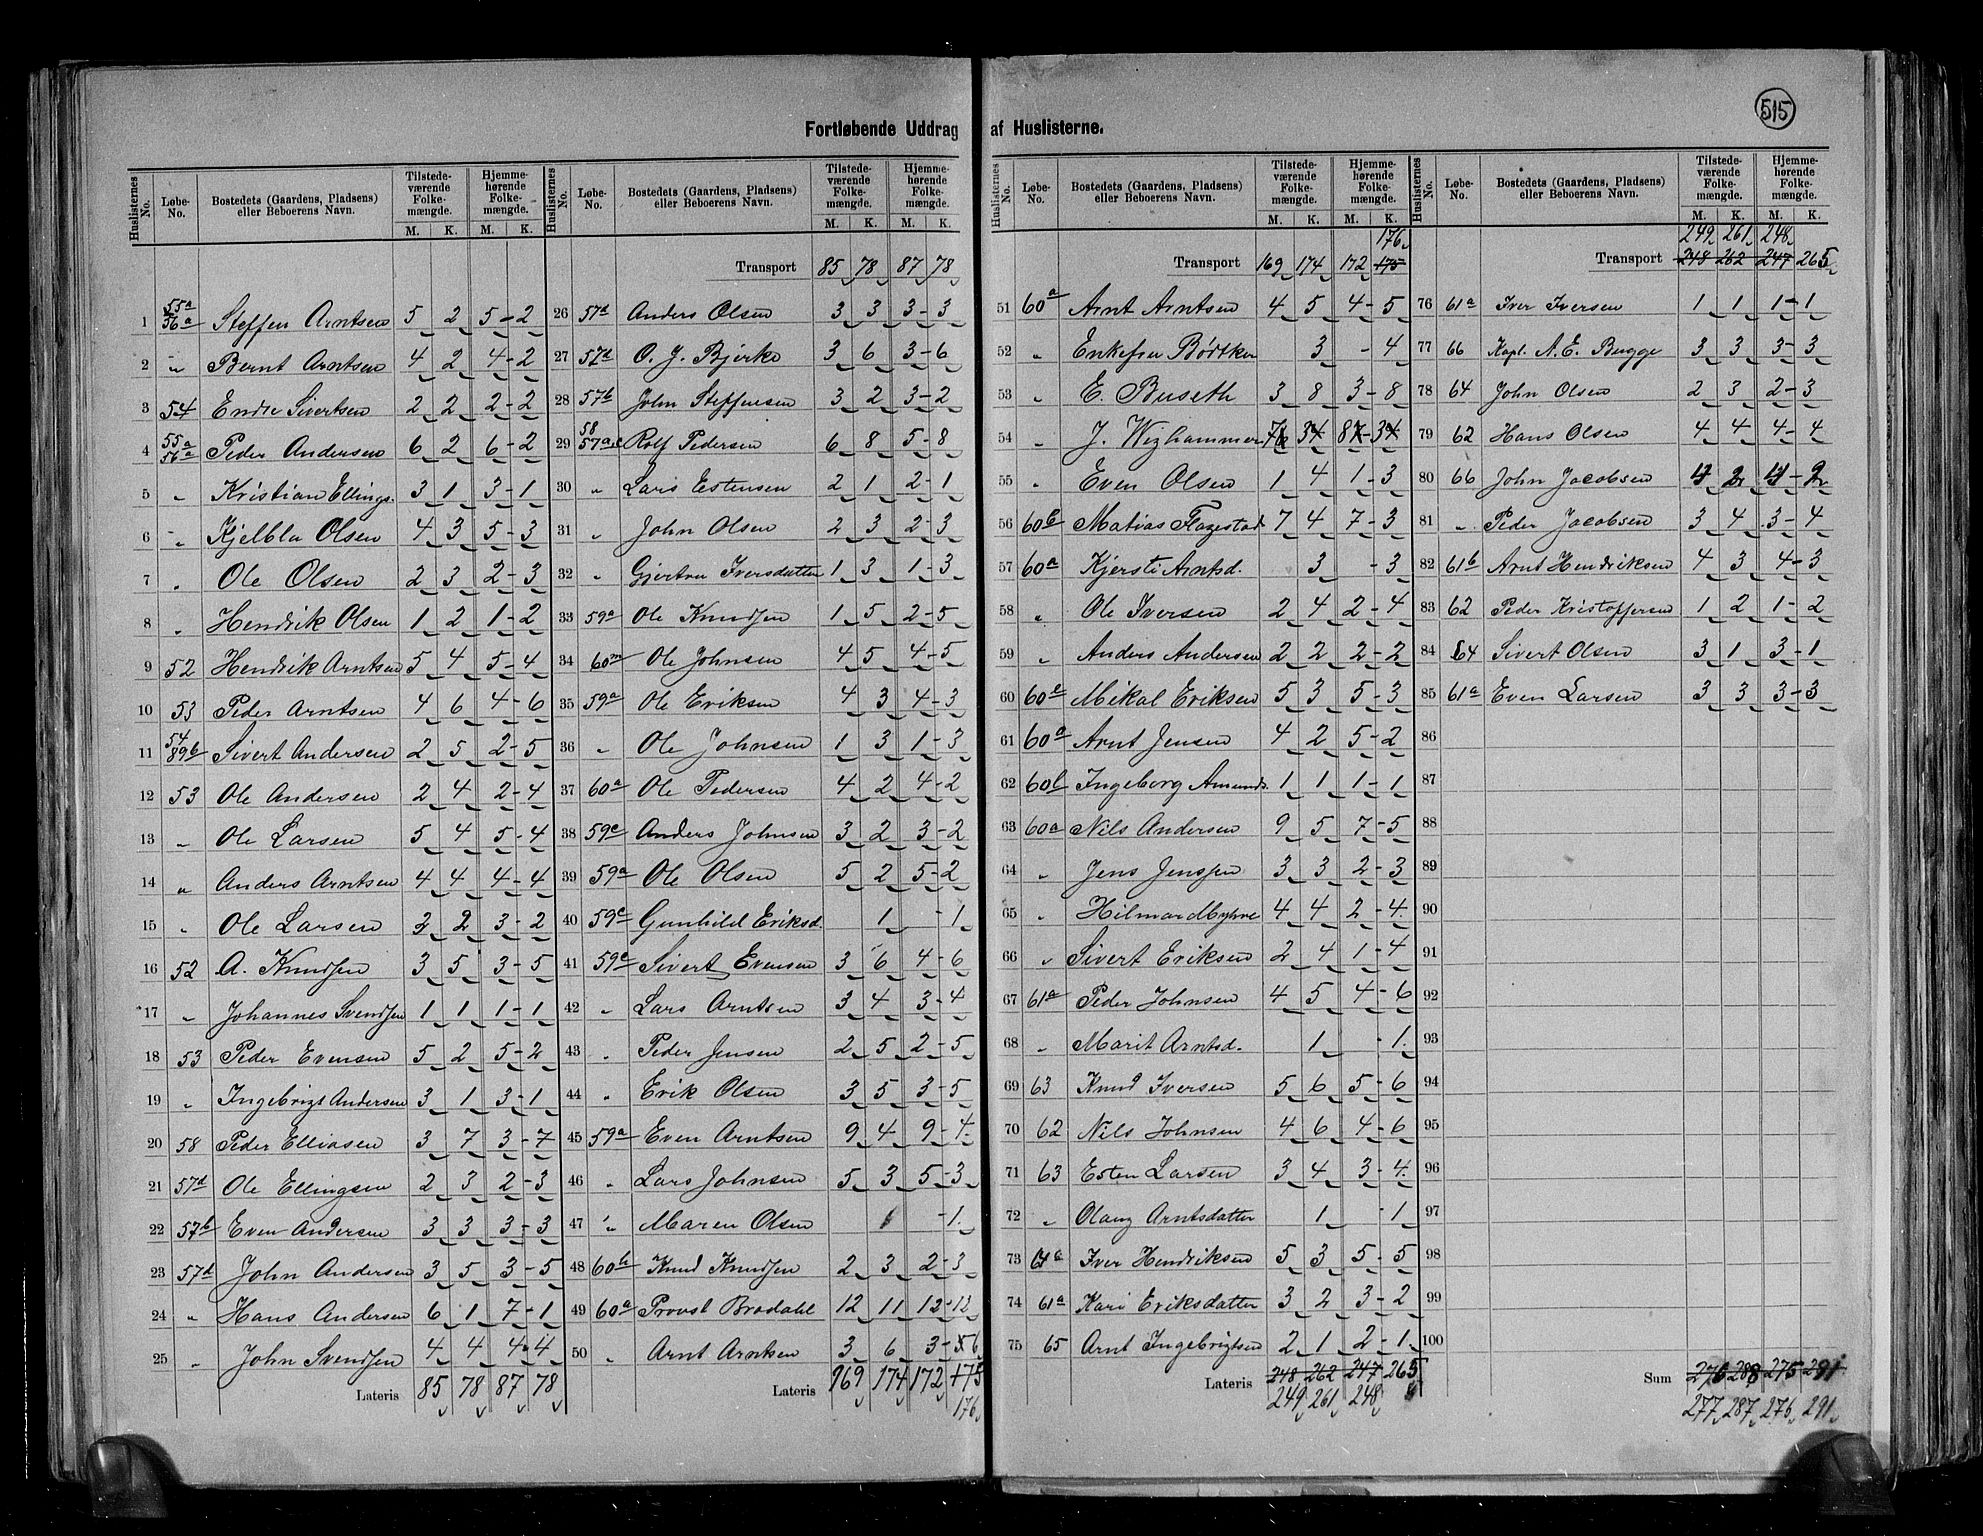 515
Fortløbende Uddrag af Huslisterne.
Huslisternes No. Løbe-No. Bostedets (Gaardens, Pladsens) eller Beboerens Navn. Tilstede-værende Folke-mængde. M. K. Hjemme-hørende Folke-mængde. M. K.
1 55a 56a Steffen Arntsen 5 2 5-2
2 " Bernt Arntsen 4 2 4-2
3 54 Endre Sivertsen 2 2 2-2
4 55a 56a Peder Andersen 6 2 6-2
5 " Kristian Ellings. 3 1 3-1
6 " Kjelbla Olsen 4 3 5-3
7 " Ole Olsen 2 3 2-3
8 " Hendrik Olsen 1 2 1-2
9 52 Hendrik Arntsen 5 4 5-4
10 53 Peder Arntsen 4 6 4-6
11 54 89b Sivert Andersen 2 5 2-5
12 53 Ole Andersen 2 4 2-4
13 " Ole Larsen 5 4 5-4
14 " Anders Arntsen 4 4 4-4
15 " Ole Larsen 2 2 3-2
16 52 A. Knudsen 3 5 3-5
17 " Johannes Svendsen 1 1 1-1
18 53 Peder Evensen 5 2 5-2
19 " Ingebrigt Andersen 3 1 3-1
20 58 Peder Elliasen 3 7 3-7
21 57d Ole Ellingsen 2 3 2-3
22 57b Even Andersen 3 3 3-3
23 57d John Andersen 3 5 3-5
24 " Hans Andersen 6 1 7-1
25 " John Svendsen 4 4 4-4
Lateris 85 78 87 78
Huslisternes No. Løbe-No. Bostedets (Gaardens, Pladsens) eller Beboerens Navn. Tilstede-værende Folke-mængde. M. K. Hjemme-hørende Folke-mængde. M. K.
Transport 85 78 87 78
26 57d Anders Olsen 3 3 3-3
27 57d O. J. Bjerke 3 6 3-6
28 57b John Steffensen 3 2 3-2
29 58 57a Rolf Pedersen 6 8 5-8
30 " Lars Estensen 2 1 2-1
31 " John Olsen 2 3 2-3
32 " Gjertru Iversdatter 1 3 1-3
33 59a Ole Knudsen 1 5 2-5
34 60m Ole Johnsen 4 5 4-5
35 59a Ole Eriksen 4 3 4-3
36 " Ole Johnsen 1 3 1-3
37 60a Ole Pedersen 4 2 4-2
38 59c Anders Johnsen 3 2 3-2
39 59a Ole Olsen 5 2 5-2
40 59c Gunhild Eriksd. 1 -1
41 59c Sivert Evensen 3 6 4-6
42 " Lars Arntsen 3 4 3-4
43 " Peder Jensen 2 5 2-5
44 " Erik Olsen 3 5 3-5
45 59a Even Arntsen 9 4 9-4
46 " Lars Johnsen 5 3 5-3
47 " Maren Olsen 1 -1
48 60h Knud Knudsen 2 3 2-3
49 60a Provst Brodahl 12 11 12-12
50 " Arnt Arntsen 3 6 3-6
Lateris 169 174 172 175
176
Huslisternes No. Løbe-No. Bostedets (Gaardens, Pladsens) eller Beboerens Navn. Tilstede-værende Folke-mængde. M. K. Hjemme-hørende Folke-mængde. M. K.
176
Transport 169 174 172 175
51 60a Arnt Arntsen 4 5 4-5
52 " Enkefru Bødtker 3 -4
53 " E. Buseth 3 8 3-8
54 " J. Wighammer
55 " Even Olsen 1 4 1-3
56 60b Matias Flagestad 7 4 7-3
57 60a Kjersti Arntsd. 3 -3
58 " Ole Iversen 2 4 2-4
59 " Anders Andersen 2 2 2-2
60 60e Mikal Eriksen 5 3 5-3
61 60a Arnt Jensen 4 2 5-2
62 60l Ingeborg Amunds. 1 1 1-1
63 60a Nils Andersen 9 5 7-5
64 " Jens Jensen 3 3 2-3
65 " Hilmar Myhre 4 4 2-4
66 " Sivert Eriksen 2 4 1-4
67 61a Peder Johnsen 4 5 4-6
68 " Marit Arntsd. 1 -1
69 63 Knud Iversen 5 6 5-6
70 62 Nils Johnsen 4 6 4-6
71 63 Esten Larsen 3 4 3-4
72 " Olaug Arntsdatter 1 -1
73 Iver Hendriksen 5 3 5-5
74 61a Kari Eriksdatter 3 2 3-2
75 65 Arnt Ingebrigtsen 2 1 2-1
Lateris 248 262 247 265
249 261 248
Huslisternes No. Løbe-No. Bostedets (Gaardens, Pladsens) eller Beboerens Navn. Tilstede-værende Folke-mængde. M. K. Hjemme-hørende Folke-mængde. M. K.
249 261 248
Transport 248 262 247 265
76 61a Iver Iversen 1 1 1-1
77 66 Kapl. N. E. Bugge 3 3 3-3
78 64 John Olsen 2 3 2-3
79 62 Hans Olsen 4 4 4-4
80 66 John Jacobsen
81 " Peder Jacobsen 3 4 3-4
82 61b Arnt Hendriksen 4 3 4-3
83 62 Peder Kristoffersen 1 2 1-2
84 64 Sivert Olsen 3 1 3-1
85 61a Even Larsen 3 3 3-3
86
87
88
89
90
91
92
93
94
95
96
97
98
99
100
Sum 276 288 275 291
277 287 276 291